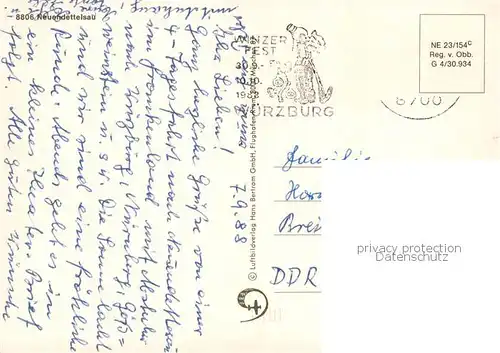 8806 Neuendettelsau
7.9.88
Ihr Lieben!
Ganz herzliche Grüße von einer
4-Tagesfahrt nach Neuendettelsau
im Frankenland mit Abstecher
nach Würzburg, Nürnberg, Göß=
weinstein u. s. f. Die Sonne lacht
und wir sind eine fröhliche
Runde. Abends geht es in
ein kleines Theater. Brief
folgt. Alle guten Wünsche
© Luftbildverlag Hans Bertram GmbH, Flughafen
WINZER
FEST
30.9.-
10.10.
1988
WÜRZBURG
8700
NE 23/154c
Reg. v. Obb.
G 4/30.934
Familie
DDR
privacy protection